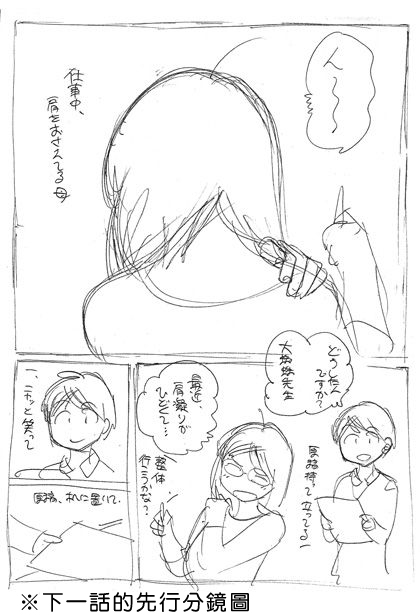 ん〜〜
仕事中、
肩をおさえてる母
どうしたん
ですか?
大嫌先生
最近、
肩凝りが
ひどくて…
整体
行こうかな?
原稿持って立ってる
一、ニヤッと笑って
原稿、机に置いて、
※下一話的先行分鏡圖